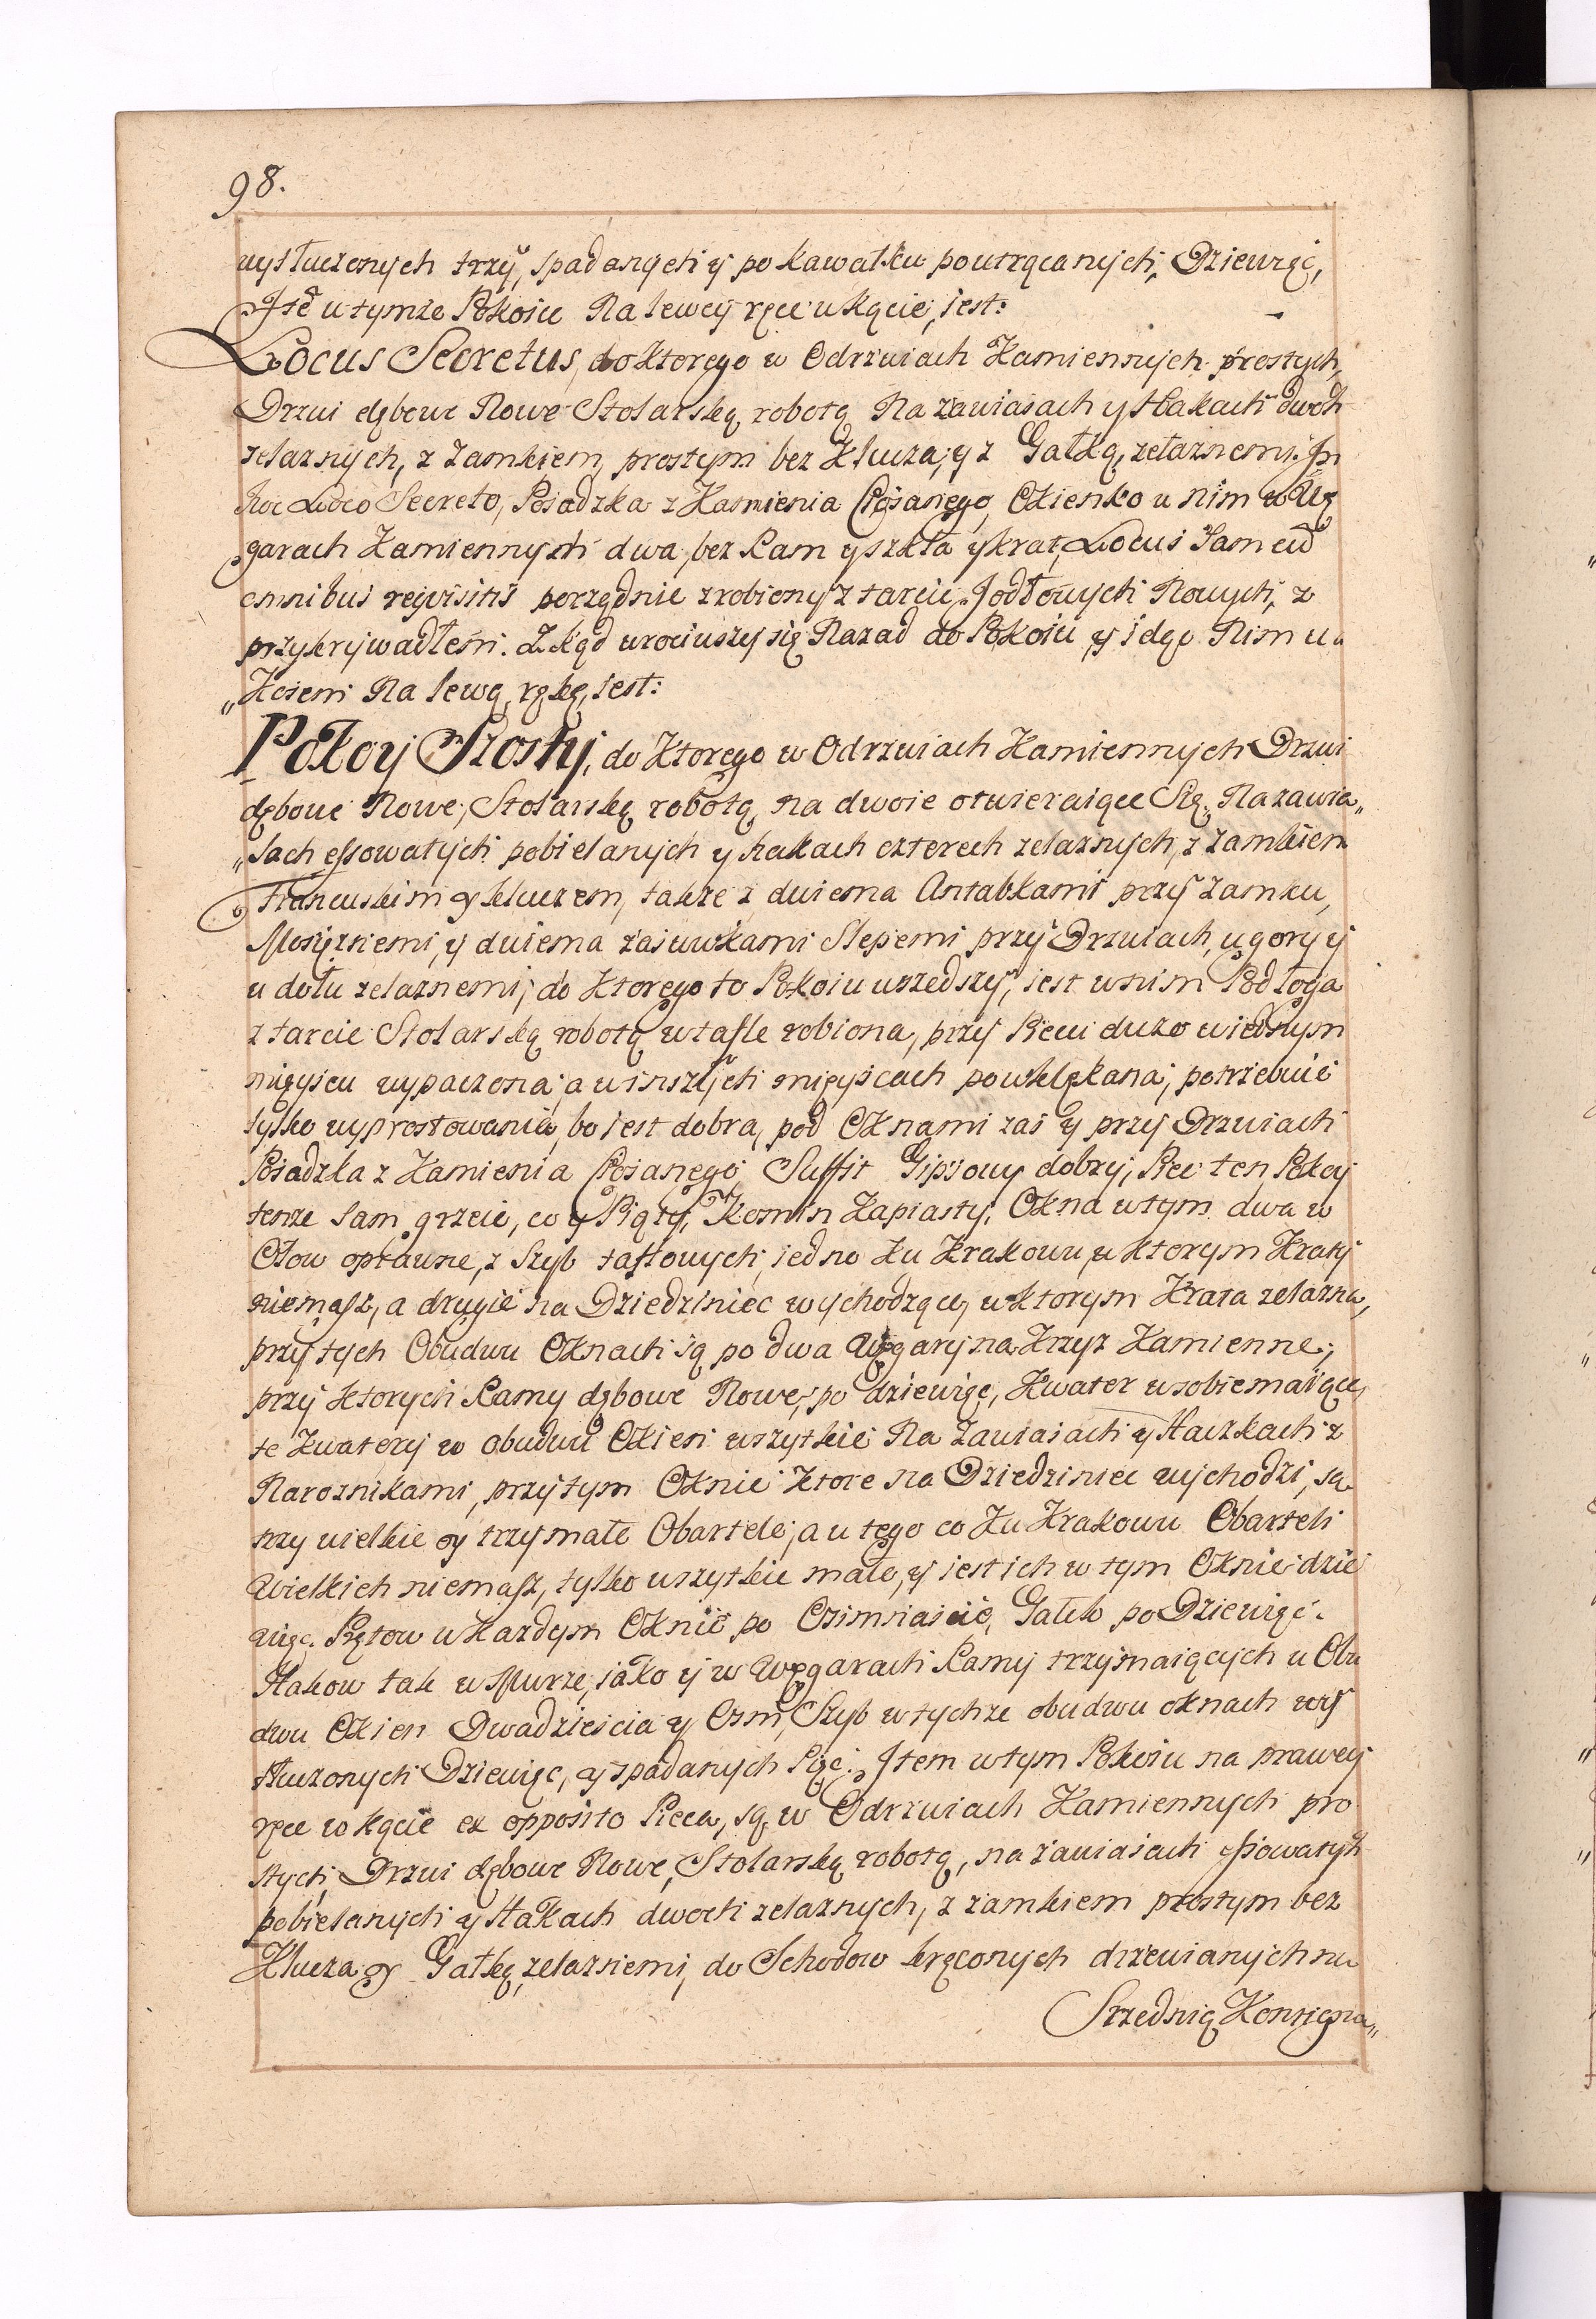 98.
wytłuczonych trzy, spadanych y po kawałku poutrącanych, Dziewięć,
Itẽ w tymże Pokoiu Na lewey ręce w Kącie, iest:
Locus Secretus, do Ktorego w Odrzwiach Kamiennych prostych,
Drzwi dębowe Nowe Stolarską robotą Na zawiasach y Hakach dwoch
żelaznych, z Zamkiem prostym bez Klucza, y z Gałką, żelaznemi. In
hoc Loco Secreto, Posadzka z Kamienia Ciosanego, Okienko w nim w Wę
garach Kamiennych dwa, bez Ram y szkła y krat, Locus Sam cũ
omnibus reqvisitis porządnie zrobiony z tarcic Jodłowych Nowych, z
przykrywadłem. Zkąd wrociwszy się Nazad do Pokoiu, y idąc Nim w
„Koiem Na lewą rękę, iest:
Pokoy Szosty, do Ktorego w Odrzwiach Kamiennych Drzwi
dębowe Nowe, Stolarską robotą, na dwoie otwieraiące Się, Na zawia„
„sach essowatych pobielanych y hakach czterech żelaznych, z zamkiem
Francuskim y kluczem, także z dwiema Antabkami przy Zamku,
Mosiężnemi, y dwiema zasuwkami Slepemi przy Drzwiach, u gory y
u dołu żelaznemi; do Ktorego to Pokoiu wszedszy, iest w nim Podłoga
z tarcic Stolarską robotą w tafle robiona, przy Piecu dużo w iednym
mieyscu wypaczona, a w inszych mieyscach powklękana, potrzebuie
tylko wyprostowania, bo iest dobra, pod Oknami zaś y przy Drzwiach
Posadzka z Kamienia Ciosanego, Suffit Gipsowy dobry, Piec ten Pokoy
tenże Sam grzeie, co y Piąty, Komin Kapiasty. Okna w tym dwa w
Ołow oprawne, z Szyb taflowych, iedno Ku Krakowu, w Ktorym Kraty
niemasz, a drugie na Dziedziniec wychodzące, w Ktorym Krata żelazna,
przy tych Obudwu Oknach są po dwa Węgary na Krzyż Kamienne;
przy Ktorych Ramy dębowe Nowe, po dziewięć, Kwater w sobie maiące,
te Kwatery w obudwu Okien wszytkie Na Zawiasach y Haczkach z
Narożnikami, przy tym Oknie Ktore na Dziedziniec wychodzi, są
trzy wielkie y trzy małe Obartele; a u tego co Ku Krakowu Obarteli
Wielkich niemasz, tylko wszytkie małe, y iest ich w tym Oknie dzie
więć. Prętow w Każdym Oknie po Osimnaście, Gałek po Dziewięć.
Hakow tak w Murze, iako y w Węgarach Ramy trzymaiących u Obu
dwu Okien Dwadzieścia y Osm, Szyb w tychże obudwu oknach wy
tłuczonych Dziewięć, y spadanych Pięć. Item w tym Pokoiu na prawey
ręce w kącie ex opposito Pieca, są w Odrzwiach Kamiennych pro
stych, Drzwi dębowe Nowe, Stolarską robotą, na zawiasach essowatych
pobielanych y Hakach dwoch żelaznych, z zamkiem prostym bez
Klucza y Gałką żelaznemi, do Schodow kręconych drzewianych na
Srzednią Kontigna„